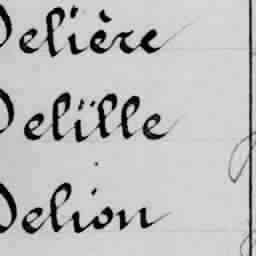 Delière
Delïlle
Delion